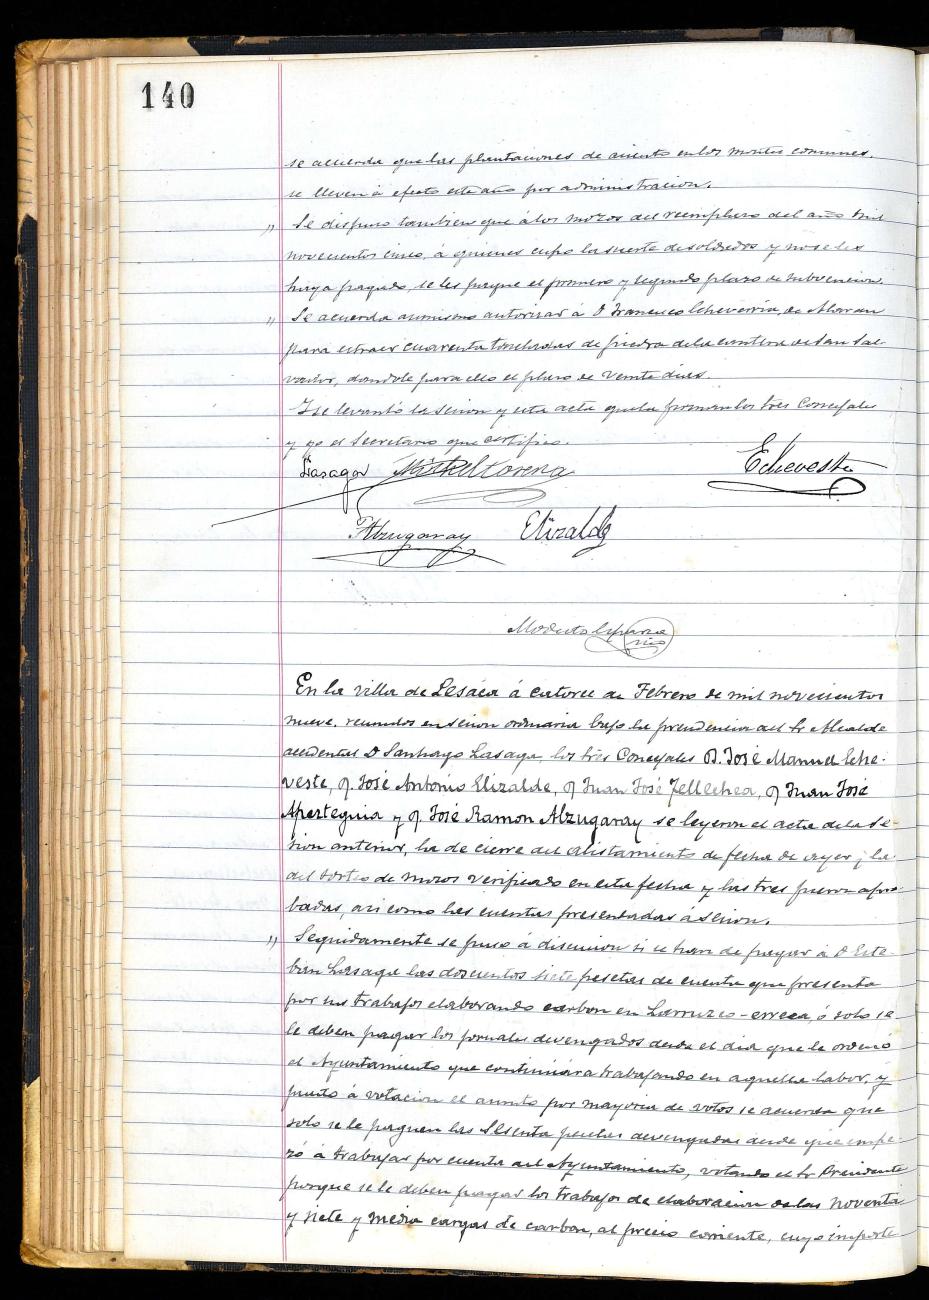 140
se acuerda que las plantaciones de asiento en los montes comunes,
se lleven á efecto este año por administracion.
" Se dispuso tambien que á los mozos del reemplazo del año mil
novecientos cinco, á quienes cupo la suerte de soldados y no se les
haya pagado, se les pague el primero y segundo plazo de subvencion.
" Se acuerda asimismo autorizar á D Francisco Echeverria, de
para extraer cuarenta toneladas de piedra de la cantera de San Sal-
vador, dandole para ello el plazo de veinte dias.
Y se levantó la sesion y esta acta que la firman los tres Concejales
y yo el Secretario que certifico.
Lasaga Echeveste
Alzugaray Elizalde
Modesto
En la villa de Lesáca á catorce de Febrero de mil novecientos
nueve, reunidos en sesion ordinaria bajo la presidencia del Sr Alcalde
accidental D Santiago Lasaga, los trés Concejales D. José Manuel Eche-
veste, D. José Antonio Elizalde, D Juan José Tellechea, D Juan José
Aperteguia y D. José Ramon Alzugaray se leyeron el acta de la se-
sion anterior, la de cierre del alistamiento de fecha de ayer y la
del sorteo de mozos verificado en esta fecha y las tres fueron apro-
badas, asi como las cuentas presentadas á sesion.
" Seguidamente se puso á discusion si se han de pagar á D Este-
ban Lasaga las doscientos siete pesetas de cuenta que presenta
por sus trabajos elaborando carbon en Larruzco-erreca, ó solo se
le deben pagar los jornales devengados desde el dia que le ordenó
el Ayuntamiento que continuára trabajando en aquella labor, y
puesto á votacion el asunto por mayoria de votos se acuerda que
solo se le paguen las sesenta pesetas devengadas desde que empe-
zó á trabajar por cuenta del Ayuntamiento, votando el Sr Presidente
porque se le deben pagar los trabajos de elaboracion de las noventa
y siete y media cargas de carbon, al precio corriente, cuyo importe